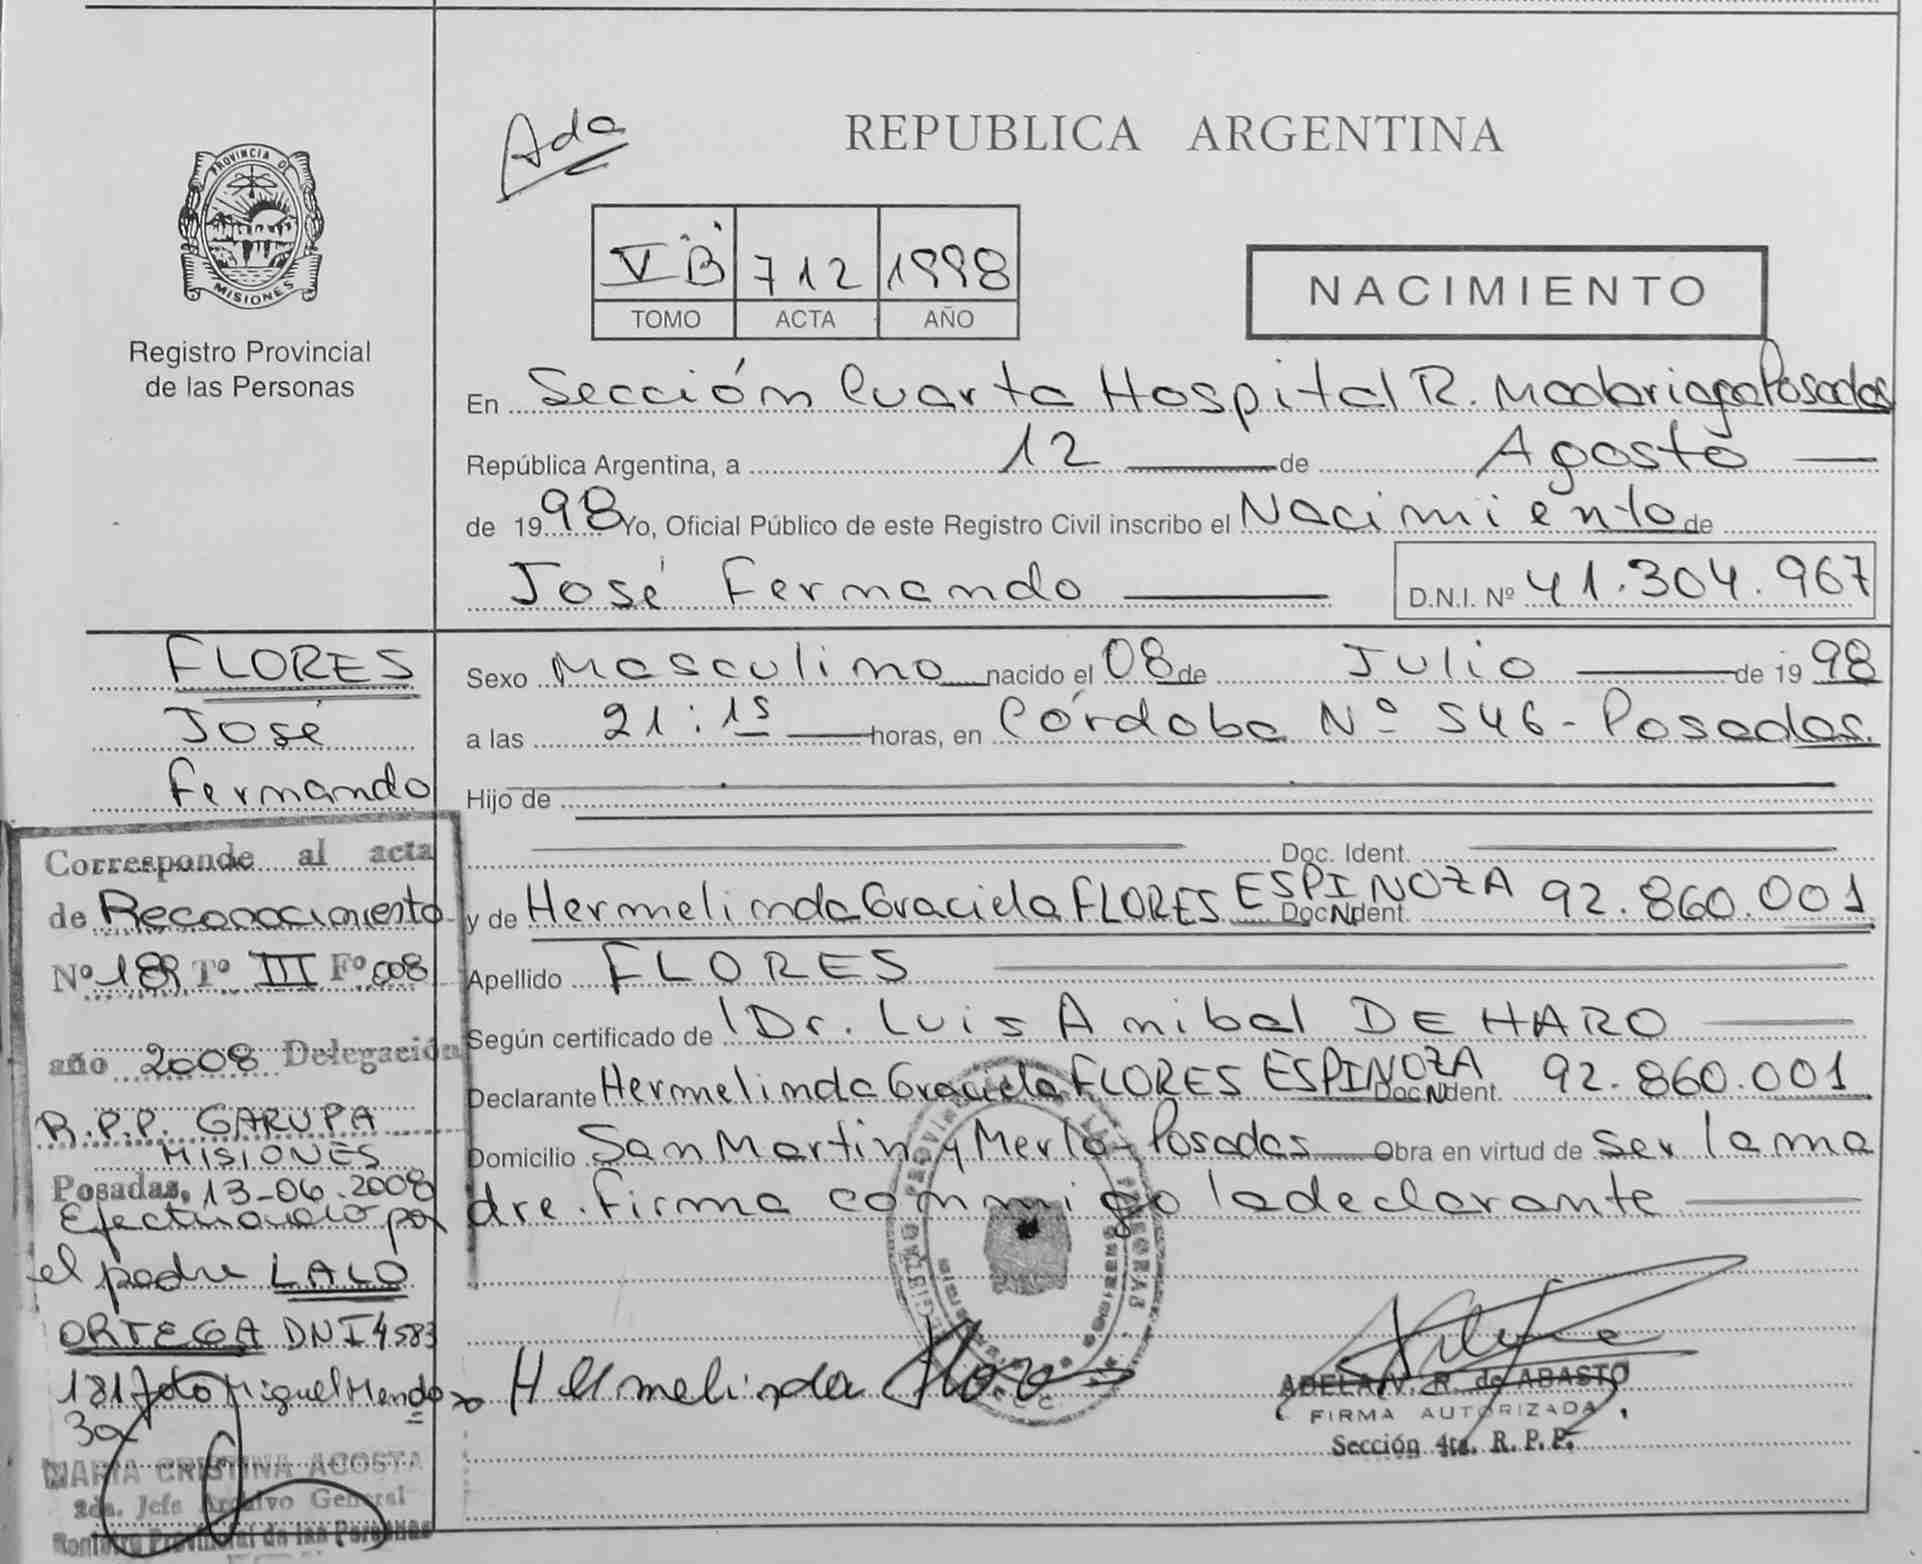 PROVINCIA DE
MISIONES
Registro Provincial
de las Personas
Ada
REPUBLICA ARGENTINA
V "B" 712 1998
TOMO ACTA AÑO
NACIMIENTO
En Sección Cuarta Hospital R. Madariaga Posadas
República Argentina, a 12 de Agosto
de 1998 Yo, Oficial Público de este Registro Civil inscribo el Nacimiento de
José Fernando D.N.I. Nº 41.304.967
FLORES
José
Fernando
Sexo Masculino nacido el 08 de Julio de 1998
a las 21:15 horas, en Córdoba Nº 546 - Posadas.
Hijo de
Doc. Ident.
y de Hermelinda Graciela FLORES ESPINOZA Doc. Ident. 92.860.001
Apellido FLORES
Según certificado de Dr. Luis Anibal DE HARO
Declarante Hermelinda Graciela FLORES ESPINOZA Doc. Ident. 92.860.001
Domicilio San Martin y Merlo - Posadas Obra en virtud de ser la ma
dre. Firma conmigo la declarante
Corresponde al acta
de Reconocimiento
Nº 189 Tº III Fº 008
año 2008 Delegación
R.P.P. GARUPA
MISIONES
Posadas, 13-06-2008
Efectuando por
el padre LALO
ORTEGA DNI 4583
181 Miguel Mendo
za
MARIA CRISTINA ACOSTA
2da. Jefe Archivo General
Registro Provincial de las Personas
Hermelinda Flores
ADELA V. R. de ABASTO
FIRMA AUTORIZADA
Sección 4ta. R. P. P.